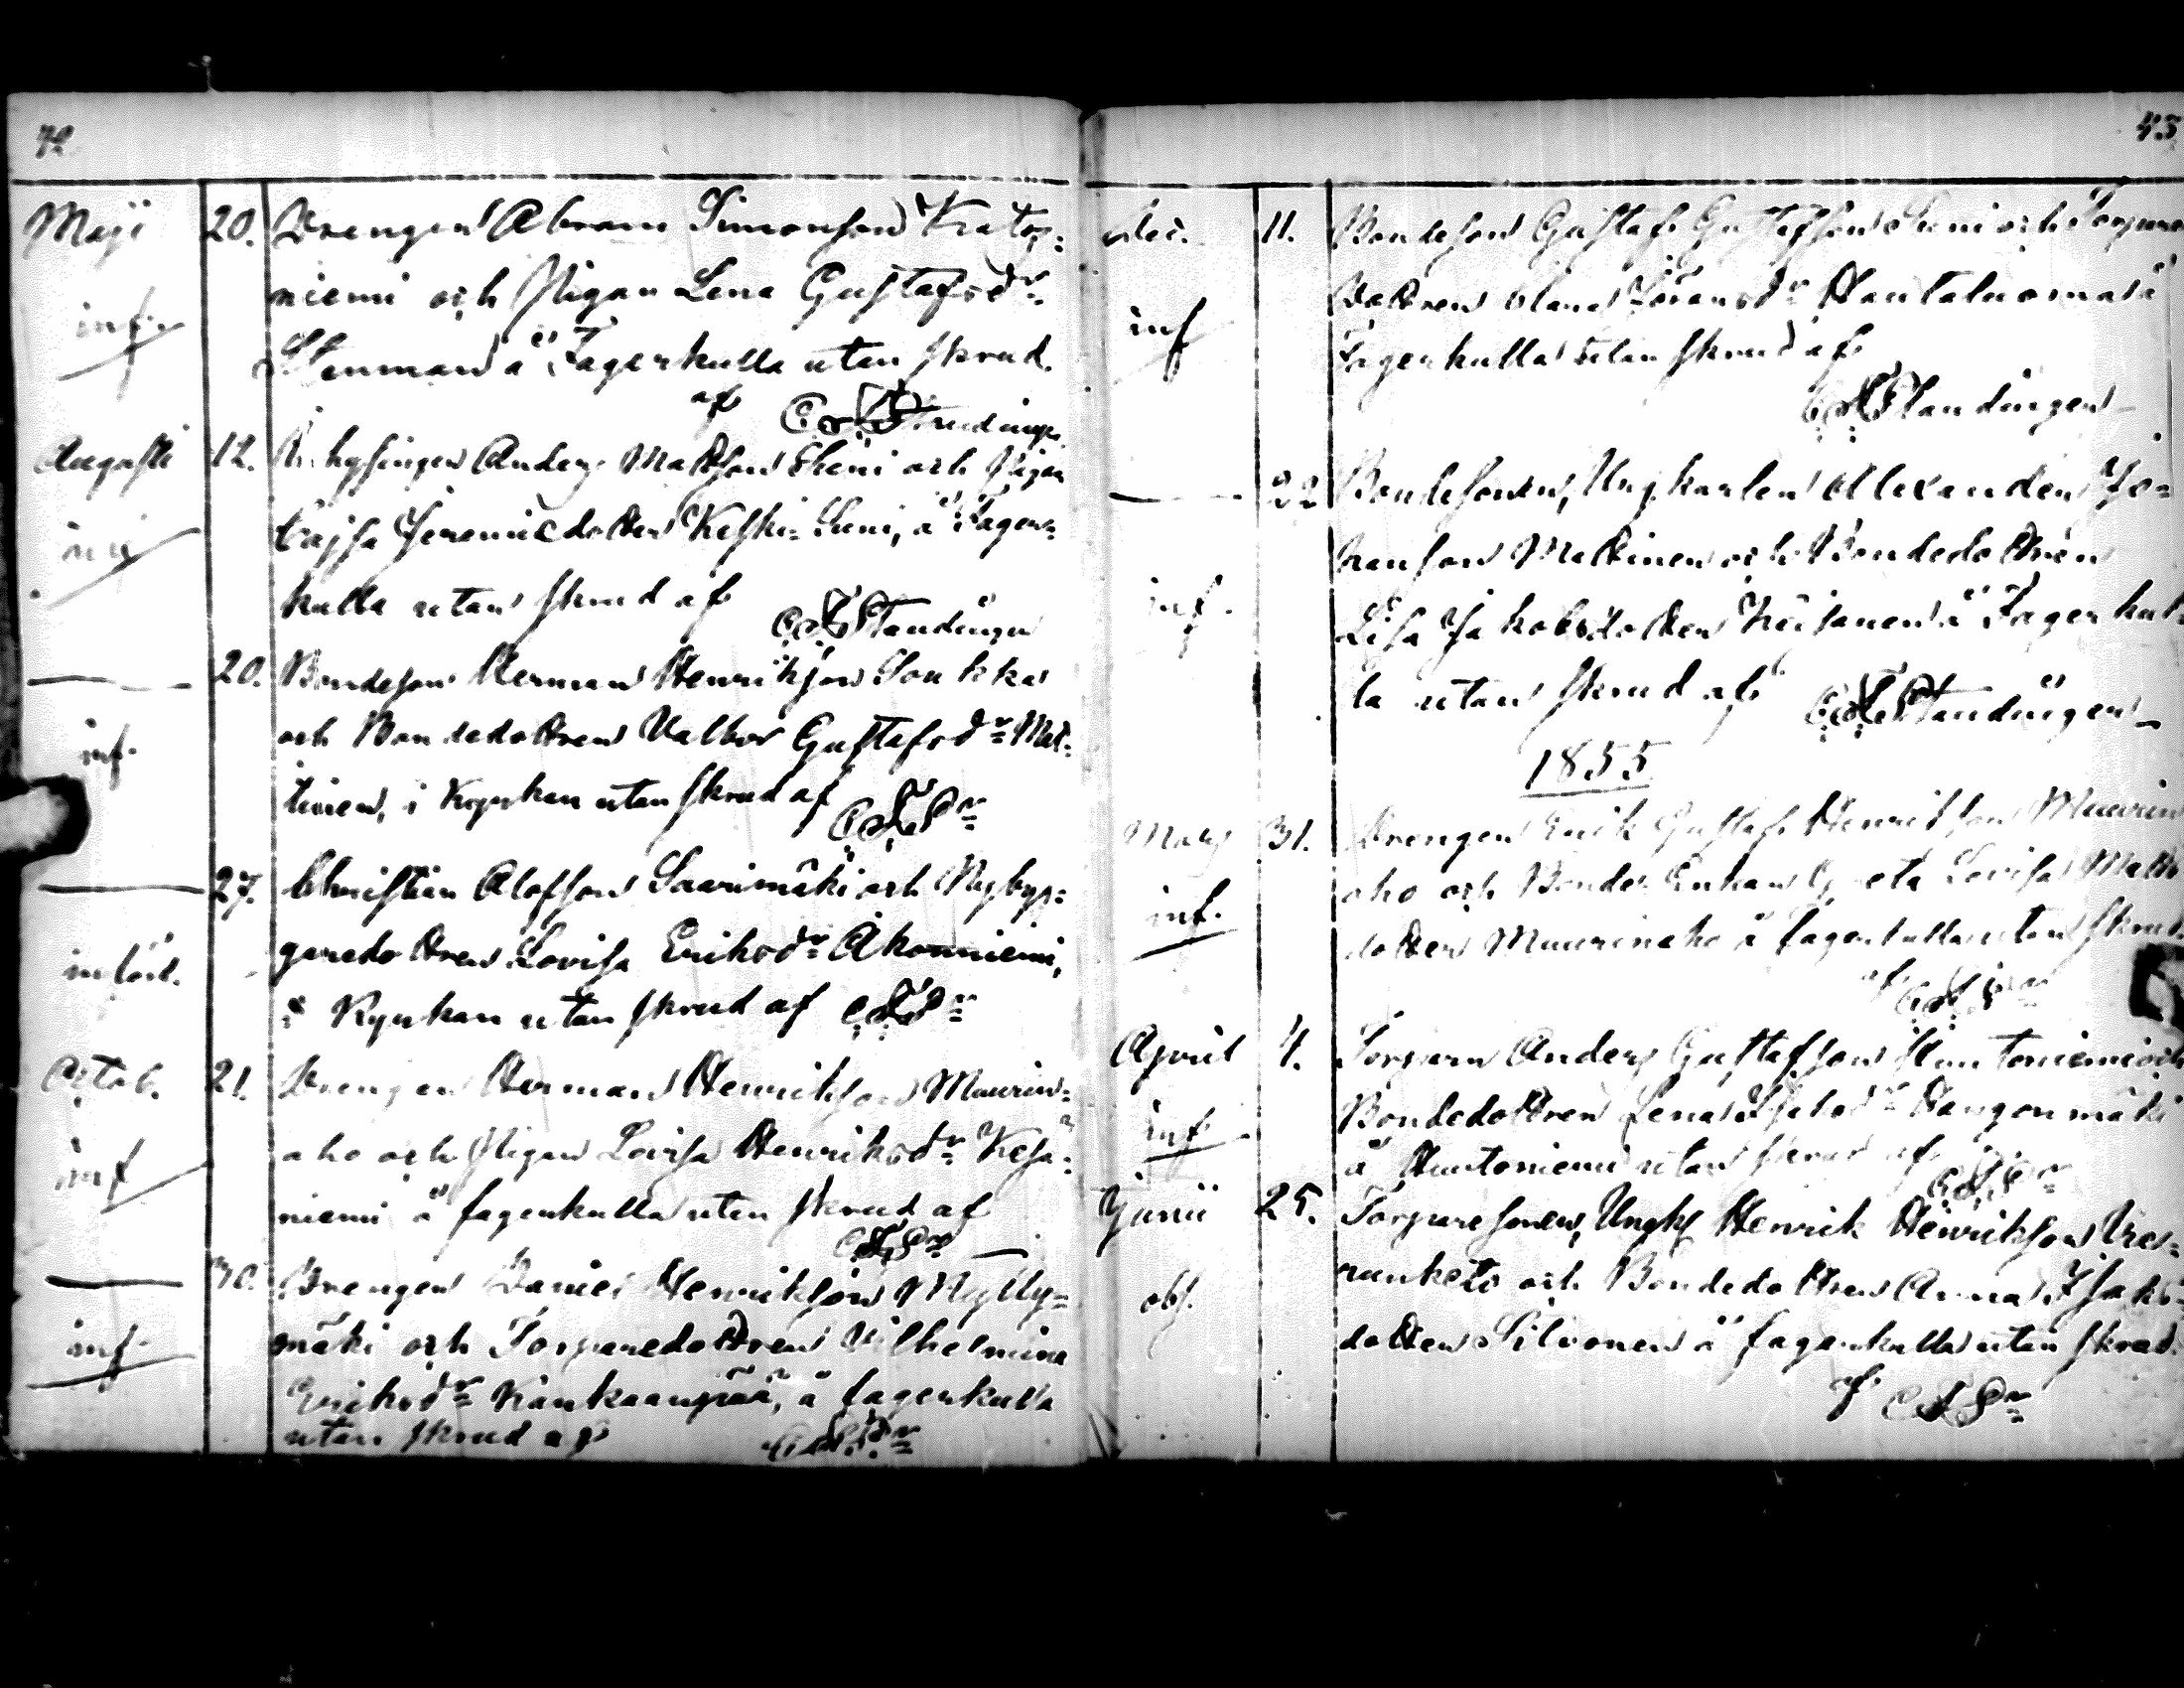 42
Maji 20. Drengen Abram Simonson Kato=
inf. niemi och Pigan Lena Gustafsdr
Stenman å Fagerkulla utan skrud.
af C. F. Standinger
Augusti 12. Anders Mattson Leini och Pigan
inf Cajsa Jeremiedotter Keski-Leini, å Fager=
kulla utan skrud af C. F. Standinger
— 20. Bondeson Herman Henrikson Soukka
inf. och Bondedottren Valbor Gustafsdr Mat=
tinen, i Kyrkan utan skrud af C. F. Sr
— 27. Christian Olofson Saarimäki och Nybyg=
garedottren Lovisa Eriksdr Akonniemi,
i Kyrkan utan skrud af C. F. Sr
Octob. 21. Drengen Herman Henrikson Muurin=
inf aho och Pigan Lovisa Henriksdr Kesä=
niemi å fagerkulla utan skrud af
C. F. Sr
— 30. Drengen Daniel Henrikson Mylly=
inf. mäki och Torparedottren Vilhelmina
Eriksdr Kankaanpää, å fagerkulla
utan skrud af C. F. Sr
43
Dec. 11. Bondeson Gustaf Gustafson Leini och Torpare
dottren Göransdr Hautaluoma å
inf Fagerkulla utan skrud af
C. F. Standinger
— 22 Bondesonen, Ungkarlen Alexander Jo=
hanson Mattinen och Bondedottren
inf. Lisa Jakobsdotter Keisanen å Fagerkul
la utan skrud af C. F. Standinger
1855
Mars 31. Drengen Erik Gustaf Henrikson Muurin
aho och Bonde Enkan Greta Lovisa Matts
inf. dotter Muurinaho å fagerkulla utan skrud
af C. F. Sr
April 4. Torparn Anders Gustafson Hautoniemi och
inf. Bondedottren Lena Kangonmäki
å Hautoniemi utan skrud af C. F. Sr
Junii 25. Torparesonen, Ungk Henrik Henrikson
och Bondedottren Anna Isaks
obs. dotter Silvonen å fagerkulla utan skrud.
af C. F. Sr